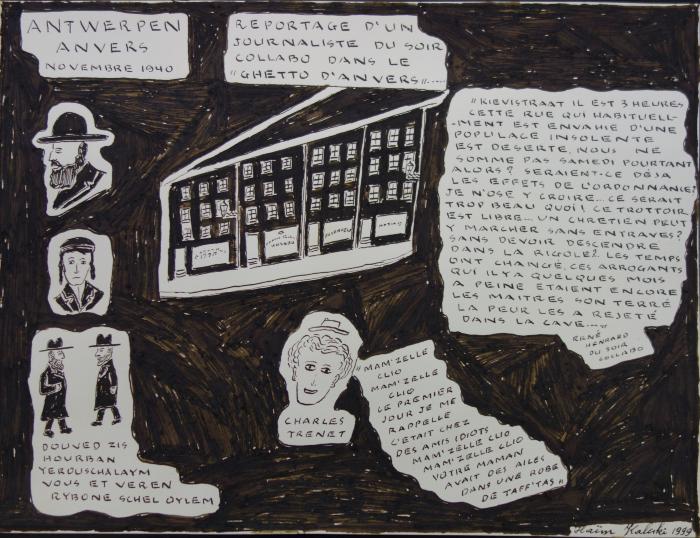 ANTWERPEN
ANVERS
NOVEMBRE 1940
REPORTAGE D'UN
JOURNALISTE DU SOIR
COLLABO DANS LE
"GHETTO D'ANVERS".....
"KIEVISTRAAT IL EST 3 HEURES
CETTE RUE QUI HABITUELL-
-MENT EST ENVAHIE D'UNE
POPULACE INSOLENTE
EST DESERTE, NOUS NE
SOMME PAS SAMEDI POURTANT
ALORS? SERAIENT-CE DÉJA
LES EFFETS DE L'ORDONNANCE
JE N'OSE Y CROIRE... CE SERAIT
TROP BEAU QUOI, CE TROTTOIR,
EST LIBRE... UN CHRETIEN PEUT
Y MARCHER SANS ENTRAVES?
SANS DEVOIR DESCENDRE
DANS LA RIGOLE?. LES TEMPS
ONT CHANGÉ, CES ARROGANTS
QUI IL Y A QUELQUES MOIS
A PEINE ETAIENT ENCORE
LES MAITRES SON TERRÉ
LA PEUR LES A REJETÉ
DANS LA CAVE...."
RENÉ
HENRARD
DU SOIR
COLLABO
DOUVED ZIS
HOURBAN
YEROUSCHALAYM
VOUS ET VEREN
RYBONE SCHEL OYLEM
CHARLES
TRENET
"MAM'ZELLE
CLIO
MAM'ZELLE
CLIO
LE PREMIER
JOUR JE ME
RAPPELLE
C'ETAIT CHEZ
DES AMIS IDIOTS
MAM'ZELLE CLIO
MAM'ZELLE CLIO
VOTRE MAMAN
AVAIT DES AILES
DANS UNE ROBE
DE TAFF'TAS"
Haïm Kaliski 1999